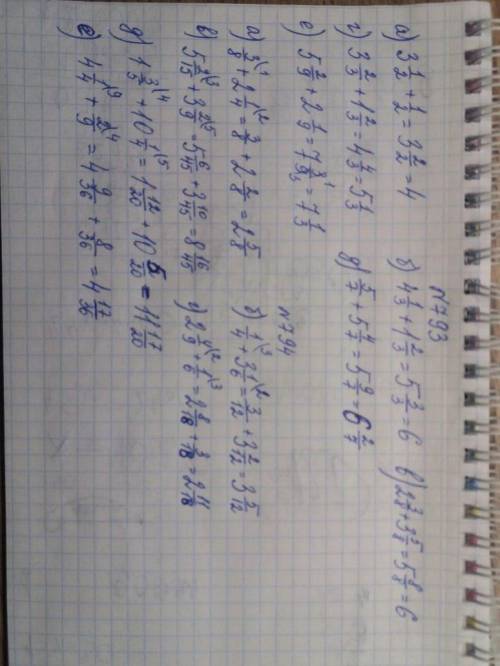 №793
а) 3 1/2 + 1/2 = 3 2/2 = 4 б) 4 1/3 + 1 2/3 = 5 3/3 = 6 в) 2 3/8 + 3 5/8 = 5 8/8 = 6
г) 3 2/3 + 1 2/3 = 4 4/3 = 5 1/3 д) 5/7 + 5 4/7 = 5 9/7 = 6 2/7
е) 5 2/9 + 2 1/9 = 7 3/9 = 7 1/3
№794
а) 3/8 + 2 1/4 = 3/8 + 2 2/8 = 2 5/8 б) 1/4 + 3 1/6 = 3/12 + 3 2/12 = 3 5/12
в) 5 2/15 + 3 2/9 = 5 6/45 + 3 10/45 = 8 16/45 г) 2 4/9 + 1/6 = 2 8/18 + 3/18 = 2 11/18
д) 1 3/5 + 10 1/4 = 1 12/20 + 10 5/20 = 11 17/20
е) 4 1/4 + 2/9 = 4 9/36 + 8/36 = 4 17/36